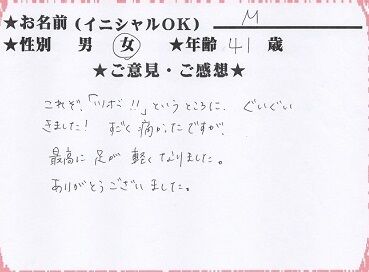 ★お名前(イニシャルOK) M
★性別 男 女 ★年齢 41 歳
★ご意見・ご感想★
これぞ、「ツボ!!」というところに、ぐいぐい
きました! すごく痛かったですが、
最高に足が軽くなりました。
ありがとうございました。